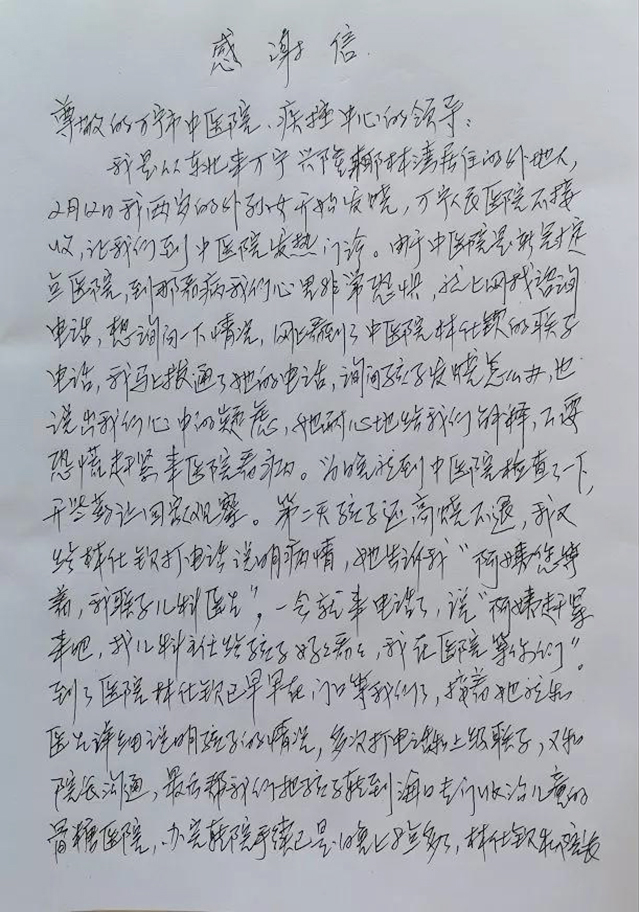 感谢信
尊敬的万宁市中医院、疾控中心的领导：
我是从东北来万宁兴隆椰林湾居住的外地人，
2月12日我两岁的外孙女开始发烧，万宁人民医院不接
收，让我们到中医院发热门诊。由于中医院是新冠定
点医院，到那看病我们心里非常恐惧，就上网找咨询
电话，想询问一下情况，网上看到了中医院林仕钦的联系
电话，我马上拨通了她的电话，询问孩子发烧怎么办，也
说出我们心中的疑虑，她耐心地给我们解释，不要
恐慌赶紧来医院看病。当晚就到中医院检查了一下，
开些药让回家观察。第二天孩子还高烧不退，我又
给林仕钦打电话说明病情，她告诉我“阿姨您等
着，我联系儿科医生”，一会就来电话了，说“阿姨赶紧
来吧，找儿科主任给孩子好好看看，我在医院等你们”。
到了医院林仕钦已早早在门口等我们了，接着她就和
医生详细说明孩子的情况，多次打电话和上级联系，又和
院长沟通，最后帮我们把孩子转到海口专门收治儿童的
骨糖医院，办完转院手续已是晚上8点多了，林仕钦和院长